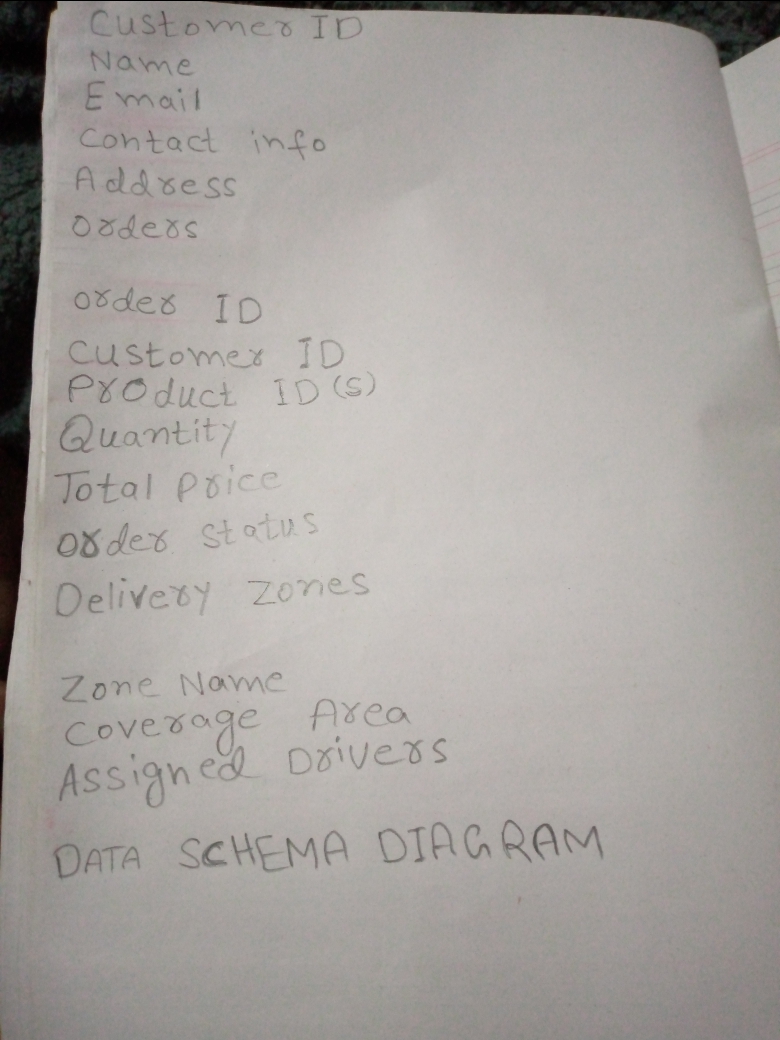 Customer ID
Name
Email
Contact info
Address
Orders
order ID
Customer ID
Product ID(s)
Quantity
Total price
order status
Delivery Zones
Zone Name
Coverage Area
Assigned Drivers
DATA SCHEMA DIAGRAM